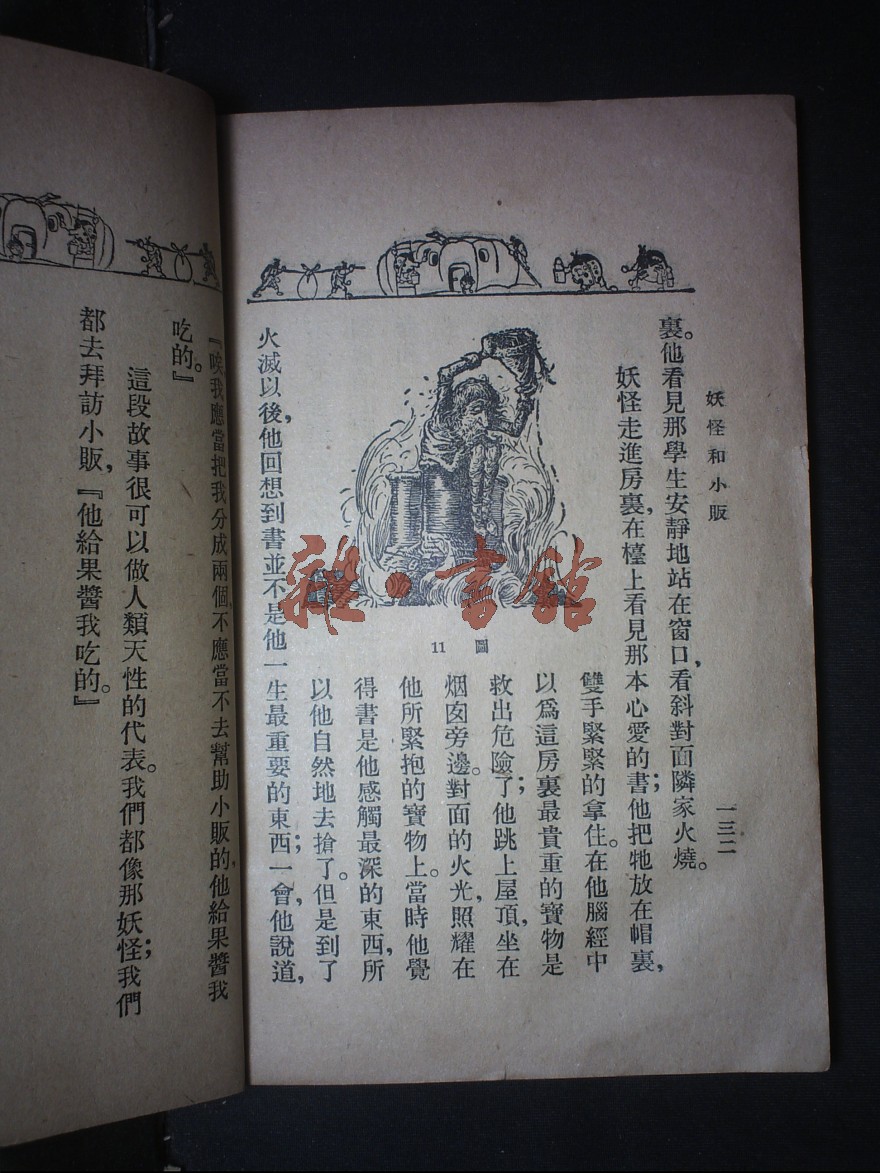 妖怪和小販
一三二
裏。他看見那學生安靜地站在窗口，看斜對面隣家火燒。
妖怪走進房裏，在檯上看見那本心愛的書；他把牠放在帽裏，
雙手緊緊的拿住。在他腦經中
以爲這房裏最貴重的寶物是
救出危險了；他跳上屋頂，坐在
烟囱旁邊。對面的火光，照耀在
他所緊抱的寶物上。當時他覺
得書是他感觸最深的東西，所
以他自然地去搶了。但是到了
圖 11
火滅以後，他回想到書並不是他一生最重要的東西；一會，他說道，
『唉，我應當把我分成兩個，不應當不去幫助小販的，他給果醬我
吃的。』
這段故事很可以做人類天性的代表。我們都像那妖怪；我們
都去拜訪小販，『他給果醬我吃的。』
雜·書館